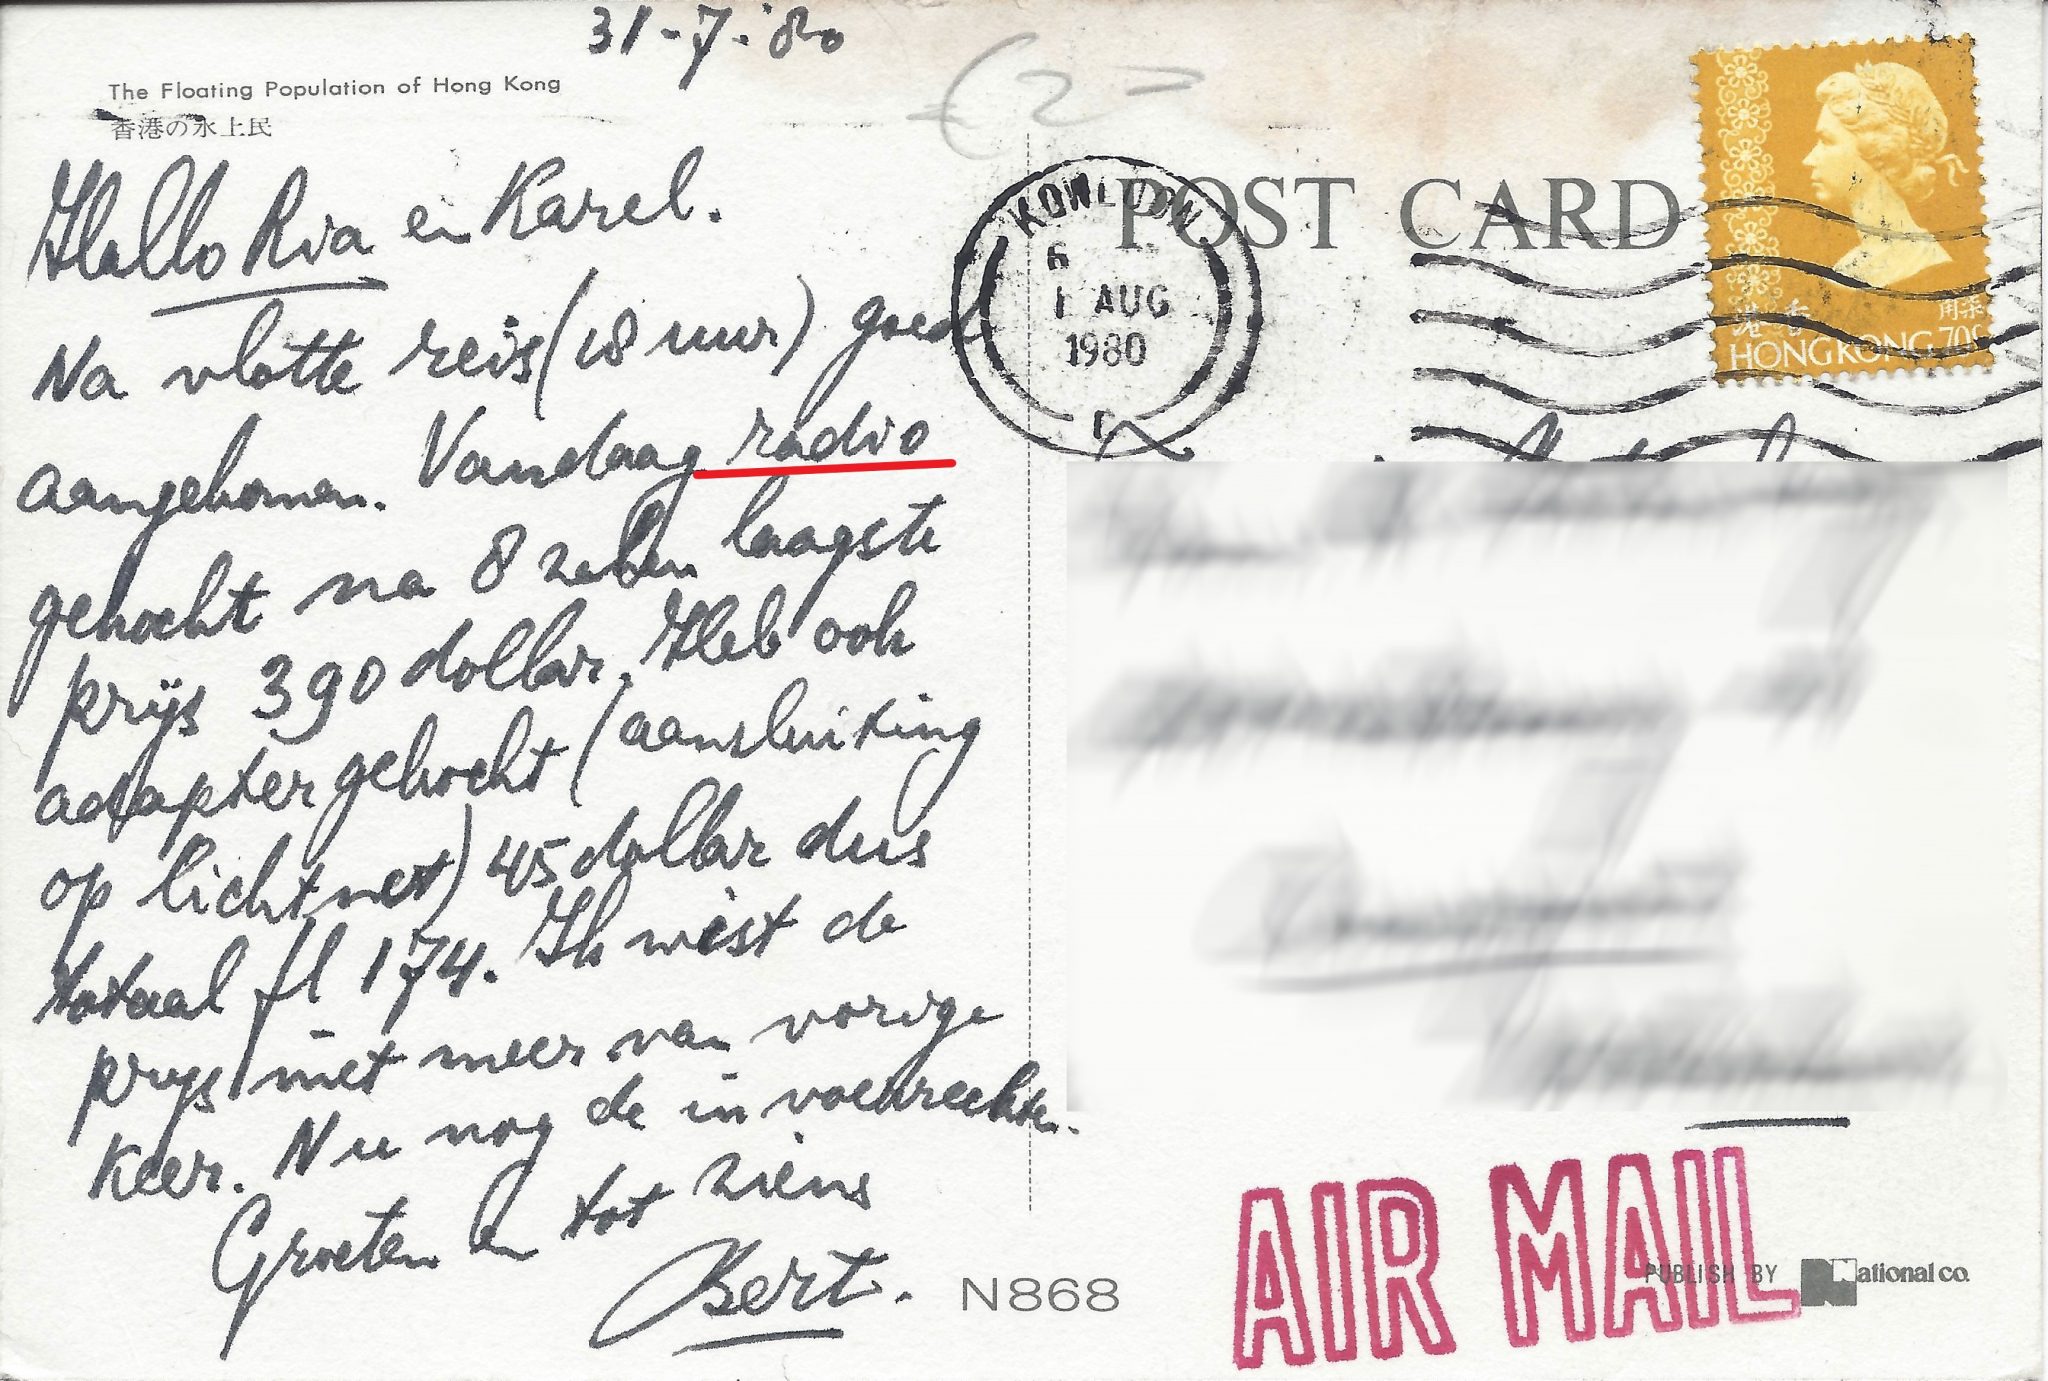 31-7-'80
The Floating Population of Hong Kong
香港の水上民
Hallo Ria en Karel.
Na vlotte reis (18 uur) goed
aangekomen. Vandaag radio
gekocht na 8 zaken laagste
prijs 390 dollar. Heb ook
adapter gekocht (aansluiting
op lichtnet) 45 dollar dus
totaal fl 174. Ik wist de
prijs niet meer van vorige
keer. Nu nog de invoerrechten.
Groeten en tot ziens
Bert.
N868
€2=
POST CARD
KOWLOON
6
1 AUG
1980
香港
HONG KONG 70c
AIR MAIL
PUBLISH BY National co.